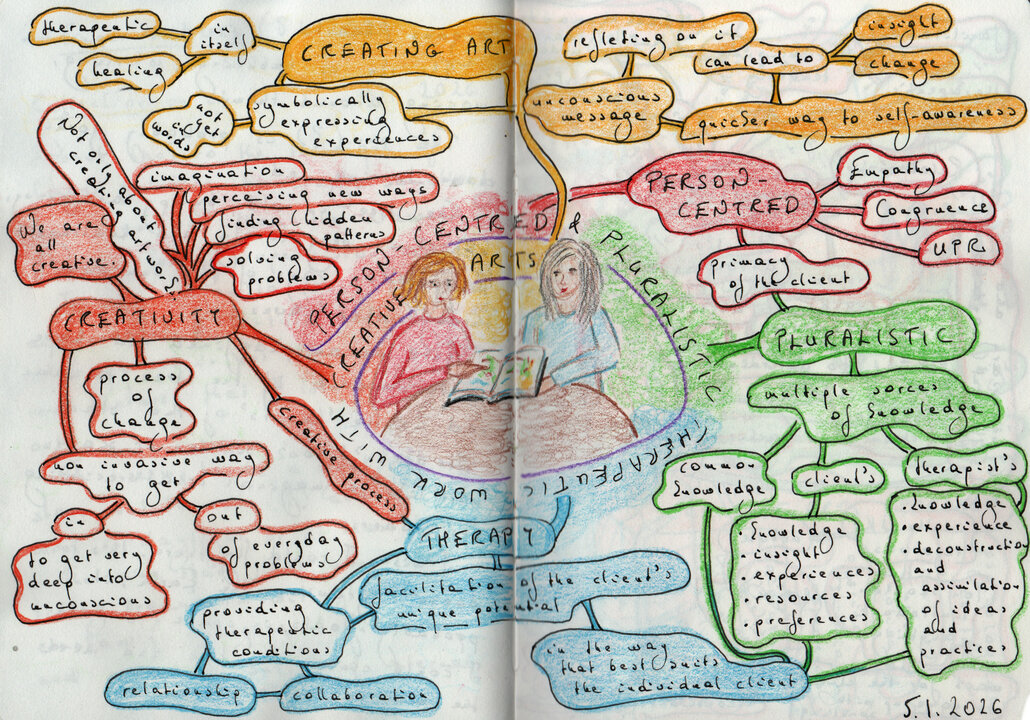 therapeutic
in
itself
healing
CREATING ART
symbolically
expressing
experiences
not
in yet
words
refleting on it
can lead to
insight
change
unconscious
message
quicker way to self-awareness
Not only about
creating artworks
imagination
perceiving new ways
finding hidden
patterns
solving
problems
We are
all
creative.
CREATIVITY
process
of
change
creative process
non invasive way
to get
in
out
to get very
deep into
unconscious
of everyday
problems
PERSON-CENTRED & PLURALISTIC
THERAPEUTIC WORK WITH
CREATIVE ARTS
PERSON-
CENTRED
Empathy
Congruence
UPR
primacy
of the client
PLURALISTIC
multiple sorces
of knowledge
common
knowledge
client's
therapist's
• knowledge
• insight
• experiences
• resources
• preferences
• knowledge
• experience
• deconstruction
and
assimilation
of ideas
and
practices
THERAPY
facilitation of the client's
unique potential
providing
therapeutic
conditions
relationship
collaboration
in the way
that best suits
the individual client
5.1.2026